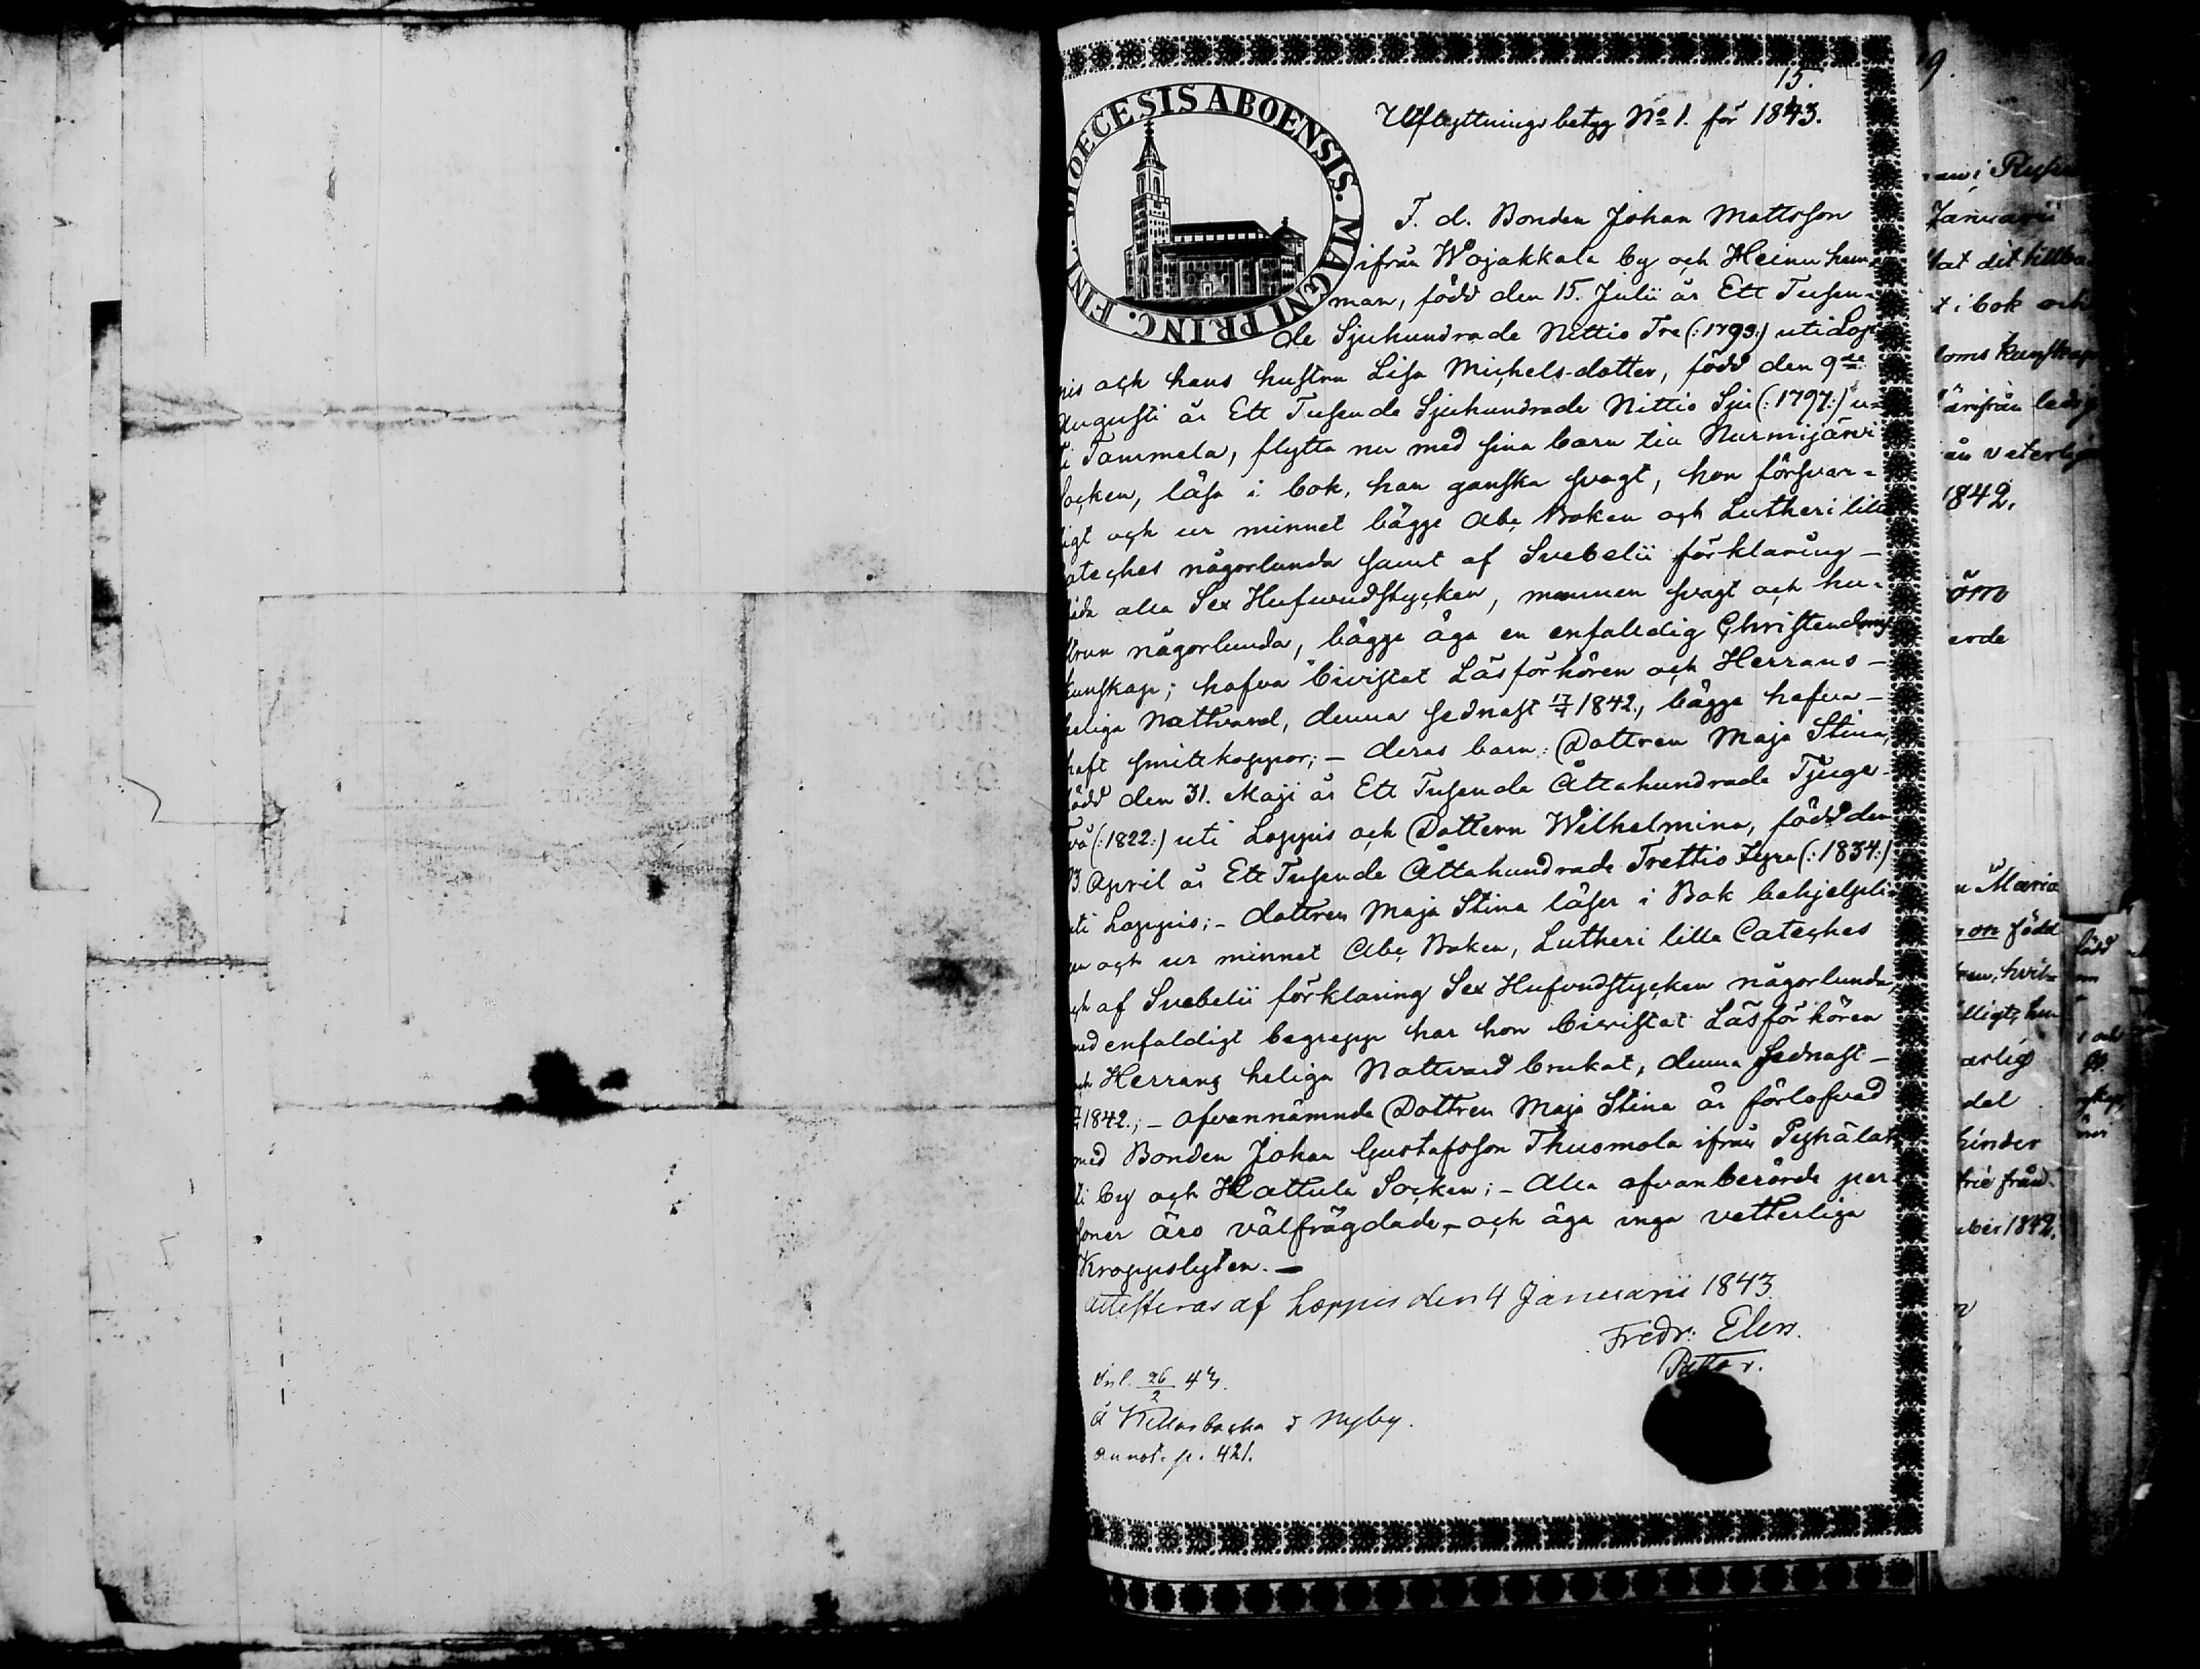 15.
Utflyttningsbetyg No 1. för 1843.
DIOECESIS ABOENSIS. MAGNI PRINC. FINL.
F. d. Bonden Johan Mattsson
ifrån Wojakkala by och Heinu hem-
man, född den 15. Julii år Ett Tusen-
de Sjuhundrade Nittio Tre (:1793:) uti Lop-
pis och hans hustru Lisa Michels-dotter, född den 9de
Augusti år Ett Tusende Sjuhundrade Nittio Sju (:1797:) u-
ti Tammela, flytta nu med sina barn till Nurmijärvi
Socken, läsa i bok, han ganska svagt, hon försvar-
ligt och ur minnet bägge Abc Boken och Lutheri lilla
Cateches någorlunda samt af Svebelii förklaring -
alla Sex Hufwudstycken, mannen svagt och hu-
strun någorlunda, bägge äga en enfalldig Christendoms
kunskap; hafva bivistat Läsförhören och Herrans -
heliga Nattvard, denna sednast 17/7 1842., bägge hafva -
haft smittkoppor; - deras barn: Dottren Maja Stina,
född den 31. Maji år Ett Tusende Åttahundrade Tjuge-
två (:1822:) uti Loppis och Dottern Wilhelmina, född den
3. April år Ett Tusende Åttahundrade Trettio Fyra (:1834:)
uti Loppis; - dottren Maja Stina läser i Bok behjelpli-
gen och ur minnet Abc Boken, Lutheri lilla Cateches
och af Svebelii förklaring Sex Hufvudstycken någorlunda,
med enfaldigt begrepp har hon bivistat Läsförhören
och Herrans heliga Nattvard brukat, denna sednast -
1842.; - ofvannämnde Dottren Maja Stina är förlofvad
med Bonden Johan Gustafsson Thusmola ifrån
by och Hattula Socken; - Alla ofvanberörde per-
soner äro välfrägdade, och äga inga vetterliga
Kroppslyten. -
Attesteras af Loppis den 4 Januarii 1843.
Fredr: Elers.
Pastor.
Inl. 26/2 43.
å i Nyby.
annot. p. 421.
9.
Januarii
dit tillba-
t i bok och
doms kunskap
ärifrån ledig
veterligen
1842.
Maria
son född
hvil-
ärlig
del
hinder
frie från
ber 1842.
född